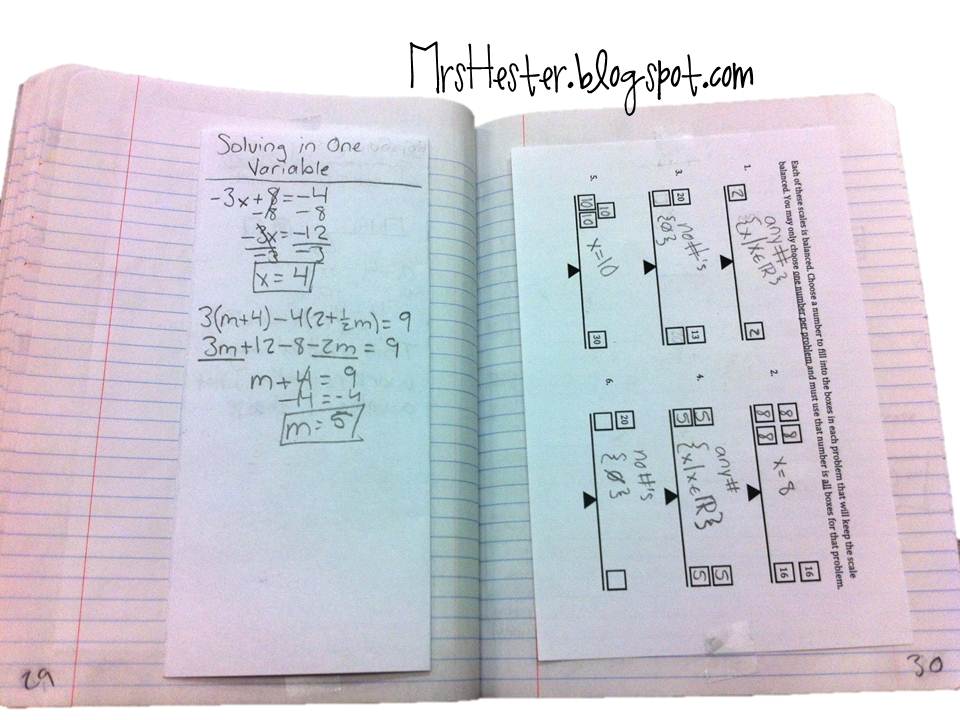 MrsHester.blogspot.com
Solving in One
Variable
-3x+8=-4
-8 -8
-3x=-12
-3 -3
x=4
3(m+4)-4(2+½m)=9
3m+12-8-2m=9
m+4=9
-4=-4
m=5
29
Each of these scales is balanced. Choose a number to fill into the boxes in each problem that will keep the scale
balanced. You may only choose one number per problem and must use that number is all boxes for that problem.
1.
2
any#
{x|x∈ℝ}
2
2.
8 8
8 8
x=8
16
16
3.
20
no#'s
{ø}
13
4.
5
5
any#
{x|x∈ℝ}
5
5
5.
10
10 10
x=10
30
6.
20
no#'s
{ø}
30